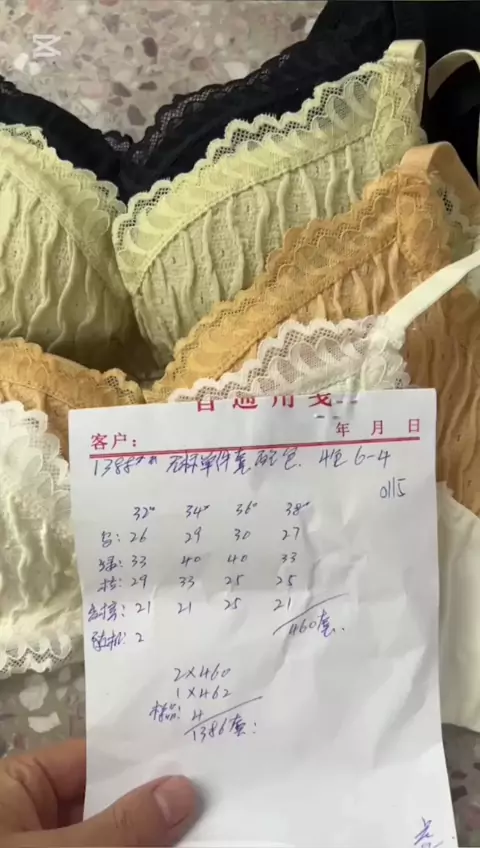 普通用笺
客户: 年 月 日
单件套 6-4
0115
32" 34" 36" 38"
26 29 30 27
绿: 33 40 40 33
29 33 25 25
21 21 25 21
随机: 2 460套.
2×460
1×462
样品: 4
1386套: